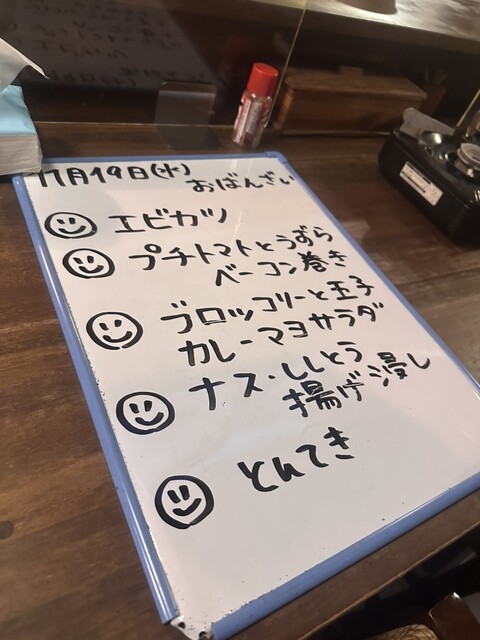 11月19日(水)
おばんざい
エビカツ
プチトマトとうずら
ベーコン巻き
ブロッコリーと玉子
カレーマヨサラダ
ナス・ししとう
揚げ浸し
とんてき